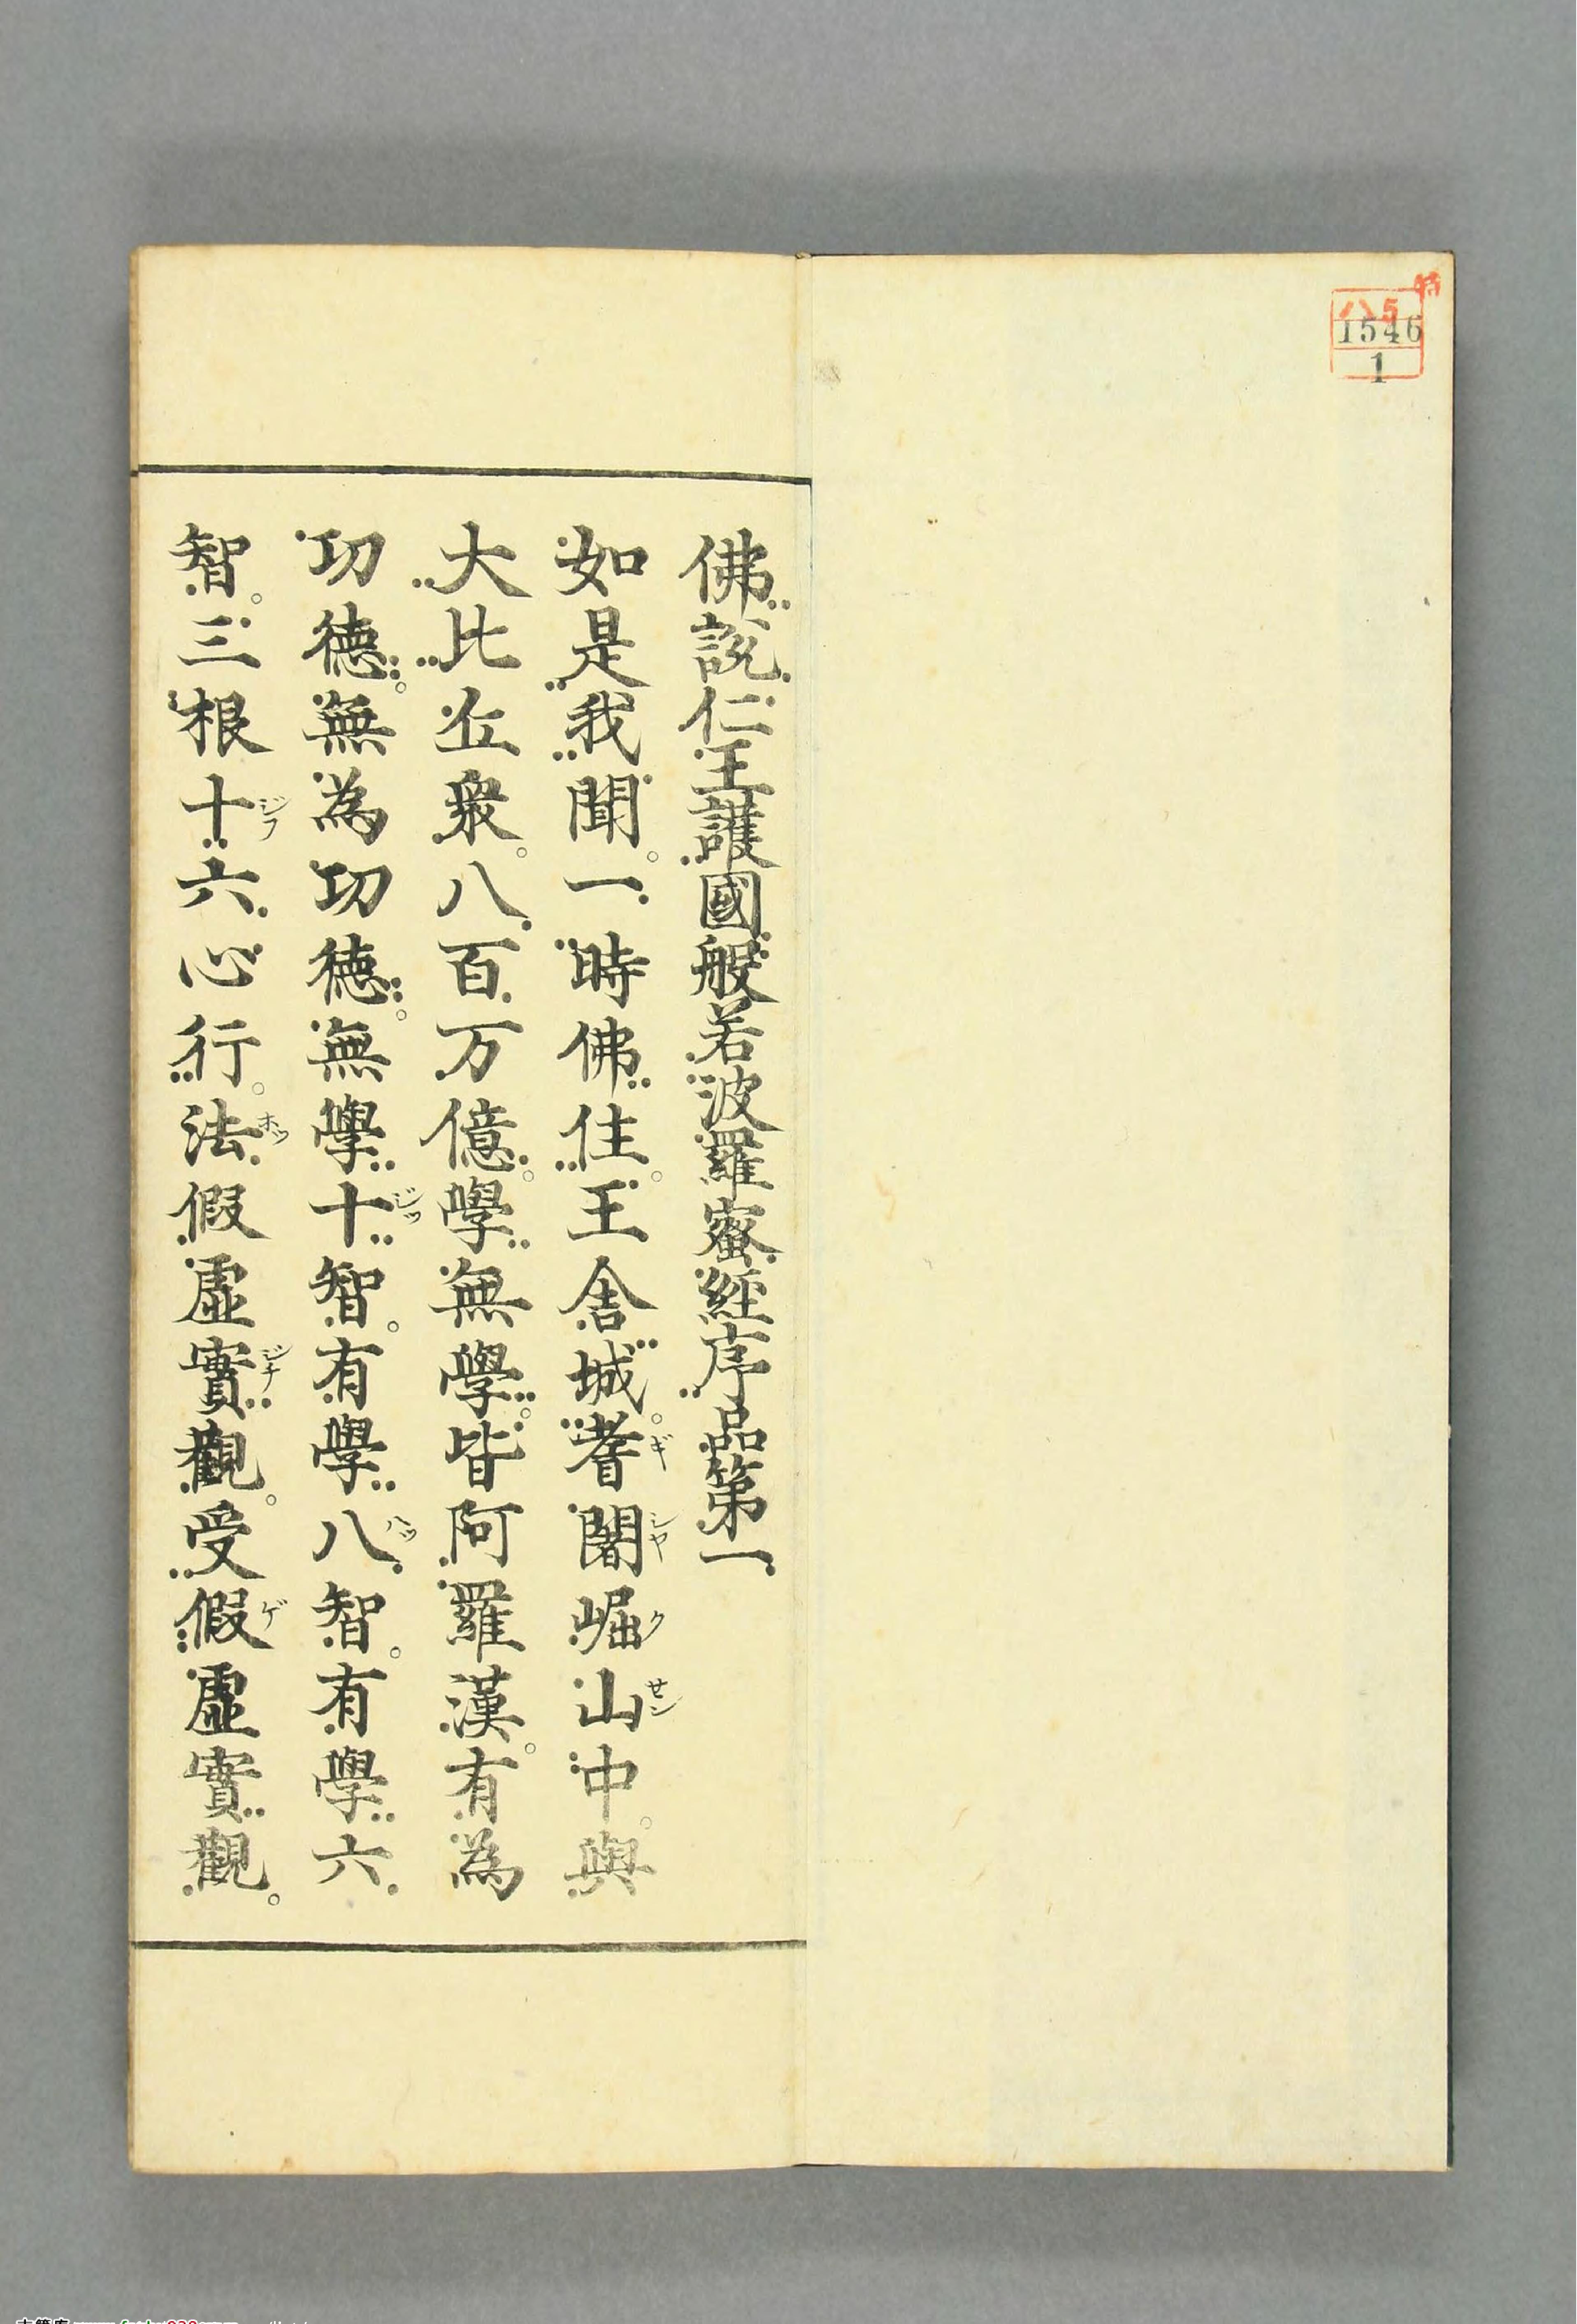 特
八5
1546
1
佛說仁王護國般若波羅蜜經序品第一
如是我聞。一時佛住。王舍城。耆ギ闍シヤ崛ク山セン中。與
大比丘眾。八百万億。學無學。皆阿羅漢。有為
功德。無為功德。無學十ジツ智。有學八ハツ智。有學六
智。三根十ジフ六心行。法ホツ假虛實ジチ觀。受假ゲ虛實觀。